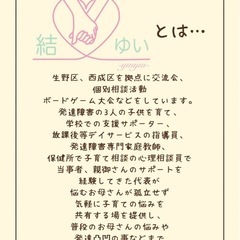 結 ゆい とは…
yuiyui
生野区、西成区を拠点に交流会、
個別相談活動
ボードゲーム大会などをしています。
発達障害の3人の子供を育て、
学校での支援サポーター、
放課後等デイサービスの指導員、
発達障害専門家庭教師、
保健所で子育て相談の心理相談員で
当事者、親御さんのサポートを
経験してきた代表が
悩むお母さんが孤立せず
気軽に子育ての悩みを
共有する場を提供し、
普段のお母さんの悩みや
発達凸凹の事などまで